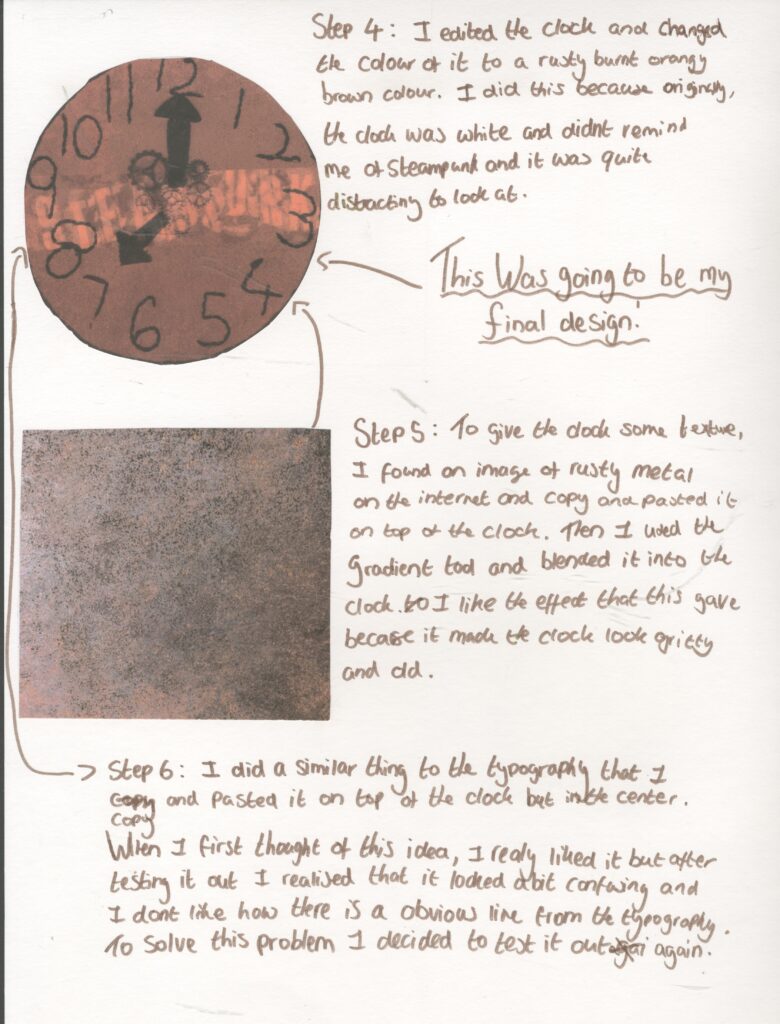 Step 4: I edited the clock and changed
the colour of it to a rusty burnt orangy
brown colour. I did this because originally,
the clock was white and didnt remind
me of Steampunk and it was quite
distracting to look at.
12
11
1
10
2
9
STEAMPUNK
3
8
7
4
6
5
This Was going to be my
final design!
Step 5: To give the clock some texture,
I found an image of rusty metal
on the internet and copy and pasted it
on top of the clock. Then I used the
Gradient tool and blended it into the
clock. I like the effect that this gave
because it made the clock look gritty
and old.
Step 6: I did a similar thing to the typography that I
copy and pasted it on top of the clock but in the center.
copy
When I first thought of this idea, I realy liked it but after
testing it out I realised that it looked abit confusing and
I dont like how there is a obvious line from the typography.
To solve this problem I decided to test it out again.